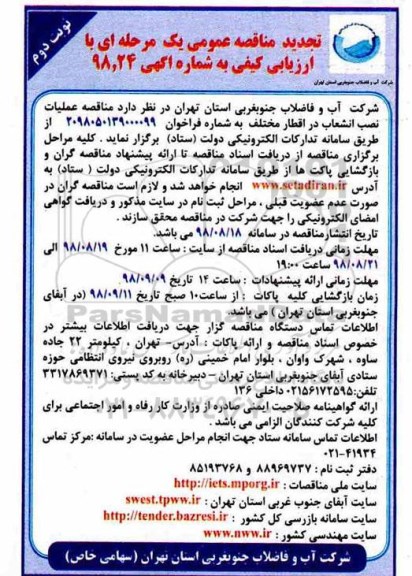 نوبت دوم
تجدید مناقصه عمومی یک مرحله ای با
ارزیابی کیفی به شماره آگهی ۹۸,۲۴
شرکت آب و فاضلاب جنوبغربی استان تهران
شرکت آب و فاضلاب جنوبغربی استان تهران در نظر دارد مناقصه عملیات
نصب انشعاب در اقطار مختلف به شماره فراخوان ۲۰۹۸۰۵۰۱۳۹۰۰۰۰۹۹ از
طریق سامانه تدارکات الکترونیکی دولت (ستاد) برگزار نماید . کلیه مراحل
برگزاری مناقصه از دریافت اسناد مناقصه تا ارائه پیشنهاد مناقصه گران و
بازگشایی پاکت ها از طریق سامانه تدارکات الکترونیکی دولت ( ستاد) به
آدرس www.setadiran.ir انجام خواهد شد و لازم است مناقصه گران در
صورت عدم عضویت قبلی ، مراحل ثبت نام در سایت مذکور و دریافت گواهی
امضای الکترونیکی را جهت شرکت در مناقصه محقق سازند .
تاریخ انتشار مناقصه در سامانه ۹۸/۰۸/۱۸ می باشد.
مهلت زمانی دریافت اسناد مناقصه از سایت : ساعت ۱۱ مورخ ۹۸/۰۸/۱۹ الی
۹۸/۰۸/۲۱ ساعت ۱۹:۰۰
مهلت زمانی ارائه پیشنهادات : ساعت ۱۴ تاریخ ۹۸/۰۹/۰۹
زمان بازگشایی کلیه پاکات : از ساعت ۱۰ صبح تاریخ ۹۸/۰۹/۱۱ (در آبفای
جنوبغربی استان تهران ) می باشد.
اطلاعات تماس دستگاه مناقصه گزار جهت دریافت اطلاعات بیشتر در
خصوص اسناد مناقصه و ارائه پاکات : آدرس- تهران ، کیلومتر ۲۲ جاده
ساوه ، شهرک واوان ، بلوار امام خمینی (ره) روبروی نیروی انتظامی حوزه
ستادی آبفای جنوبغربی استان تهران – دبیرخانه به کد پستی: ۳۳۱۷۸۶۹۳۷۱
تلفن: ۰۲۱۵۶۱۷۲۵۹۵ داخلی ۱۳۶
ارائه گواهینامه صلاحیت ایمنی صادره از وزارت کار رفاه و امور اجتماعی برای
کلیه شرکت کنندگان الزامی می باشد .
اطلاعات تماس سامانه ستاد جهت انجام مراحل عضویت در سامانه :مرکز تماس
۰۲۱-۴۱۹۳۴
دفتر ثبت نام : ۸۸۹۶۹۷۳۷ و ۸۵۱۹۳۷۶۸
سایت ملی مناقصات : http://iets.mporg.ir
سایت آبفای جنوب غربی استان تهران : swest.tpww.ir
سایت سامانه بازرسی کل کشور : http://tender.bazresi.ir
سایت مهندسی کشور : www.nww.ir
شرکت آب و فاضلاب جنوبغربی استان تهران (سهامی خاص)